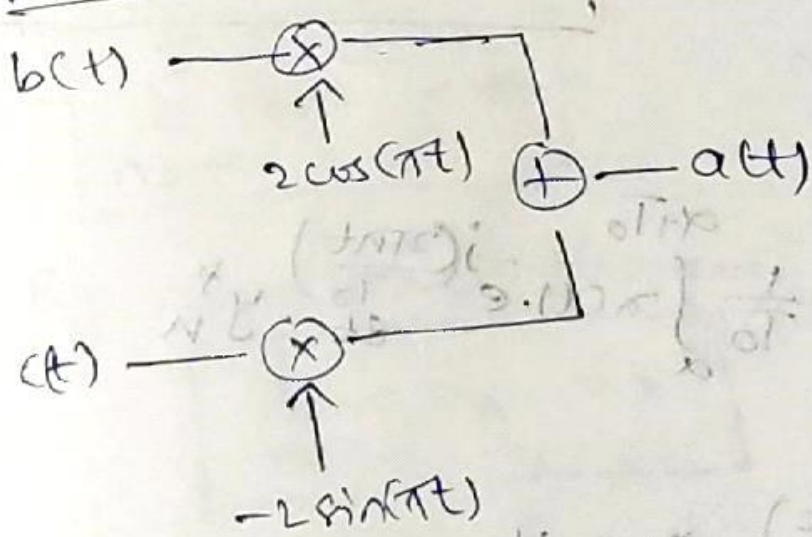 b(t)
×
2cos(πt)
+
a(t)
c(t)
×
-2sin(πt)